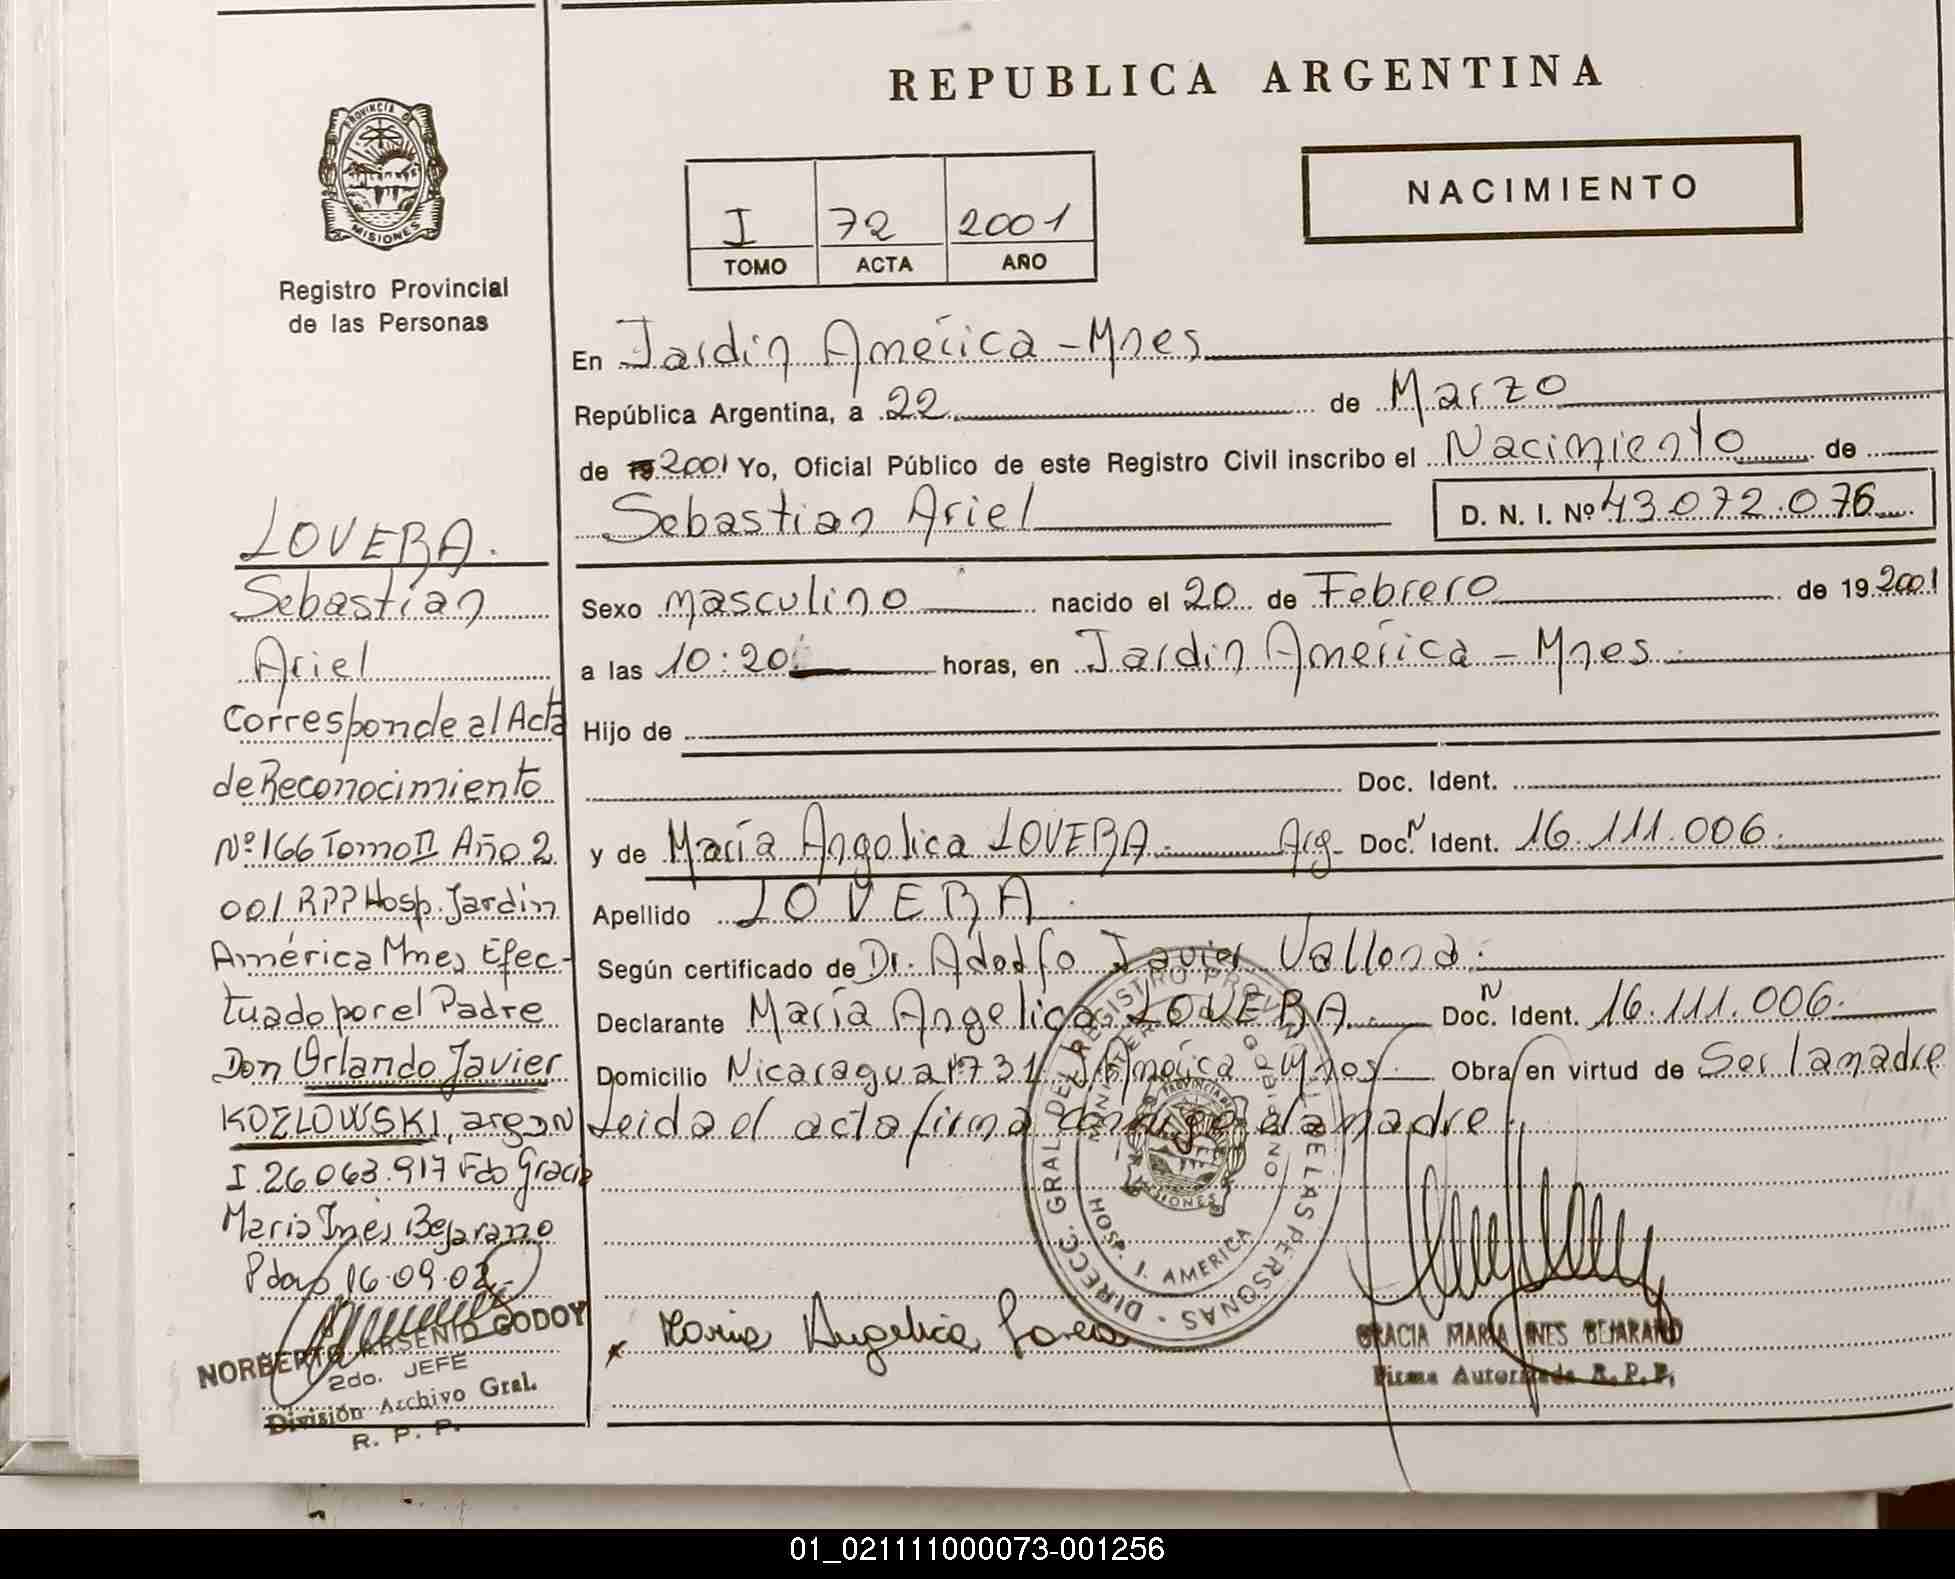 REPUBLICA ARGENTINA
NACIMIENTO
I 72 2001
TOMO ACTA AÑO
PROVINCIA DE
MISIONES
Registro Provincial
de las Personas
En Jardín América - Mnes
República Argentina, a 22 de Marzo
de 19 2001 Yo, Oficial Público de este Registro Civil inscribo el Nacimiento de
Sebastian Ariel D. N. I. Nº 43.072.076
Sexo masculino nacido el 20 de Febrero de 19 2001
a las 10:20 horas, en Jardín América - Mnes
Hijo de
Doc. Ident.
y de María Angelica LOVERA Arg. Doc. N Ident. 16.111.006
Apellido LOVERA
Según certificado de Dr. Adolfo Javier Vallona
Declarante María Angelica LOVERA Doc. N Ident. 16.111.006
Domicilio Nicaragua 1731 J. América Mnes Obra en virtud de Ser la madre
Leida el acta firma conmigo la madre
LOVERA.
Sebastían
Ariel
Corresponde al Acta
de Reconocimiento
Nº 166 Tomo II Año 2
001 RPP Hosp. Jardín
América Mnes Efec-
tuado por el Padre
Don Orlando Javier
KOZLOWSKI, argo N
I 26.063.917 Fdo Gracia
Maria Inés Bejarano
Pdas 16.09.02
NORBERTO ARSENIO GODOY
2do. JEFE
División Archivo Gral.
R. P. P.
DIRECC. GRAL. DEL REGISTRO PROVINCIAL DE LAS PERSONAS
MINISTERIO DE GOBIERNO
HOSP. J. AMERICA
PROVINCIA
MISIONES
x Maria Angelica Lovera
GRACIA MARIA INES BEJARANO
Firma Autorizada R. P. P.
01_021111000073-001256